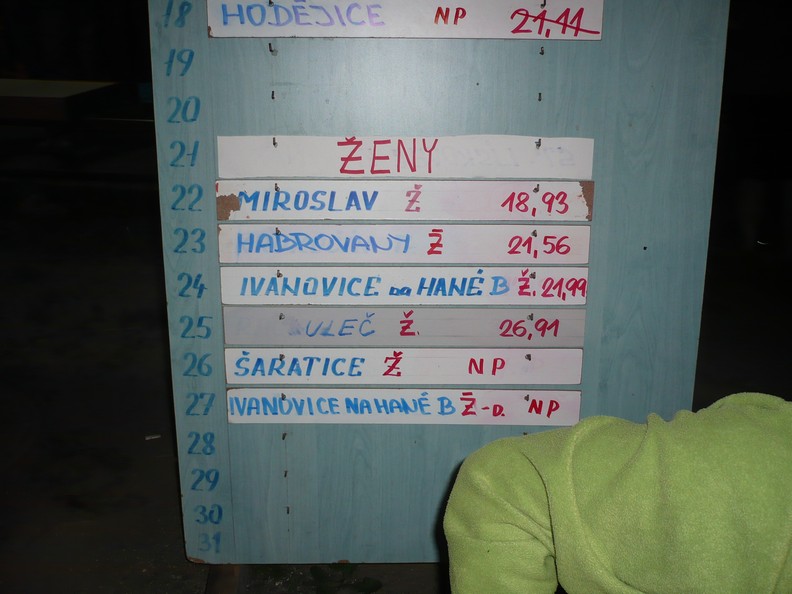 18 HODĚJICE NP 21,11
19
20
21 ŽENY
22 MIROSLAV Ž 18,93
23 HABROVANY Ž 21,56
24 IVANOVICE na HANÉ B Ž. 21,99
25 ULEČ Ž. 26,91
26 ŠARATICE Ž NP
27 IVANOVICE NA HANÉ B Ž-D. NP
28
29
30
31